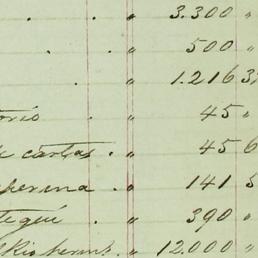 . " 3.300 "
. . " 500 "
. " 1.216 3
orio . " 45 "
de cartas . " 45 6
perina . " 141 5
tegui . " 390 "
" 12.000 "